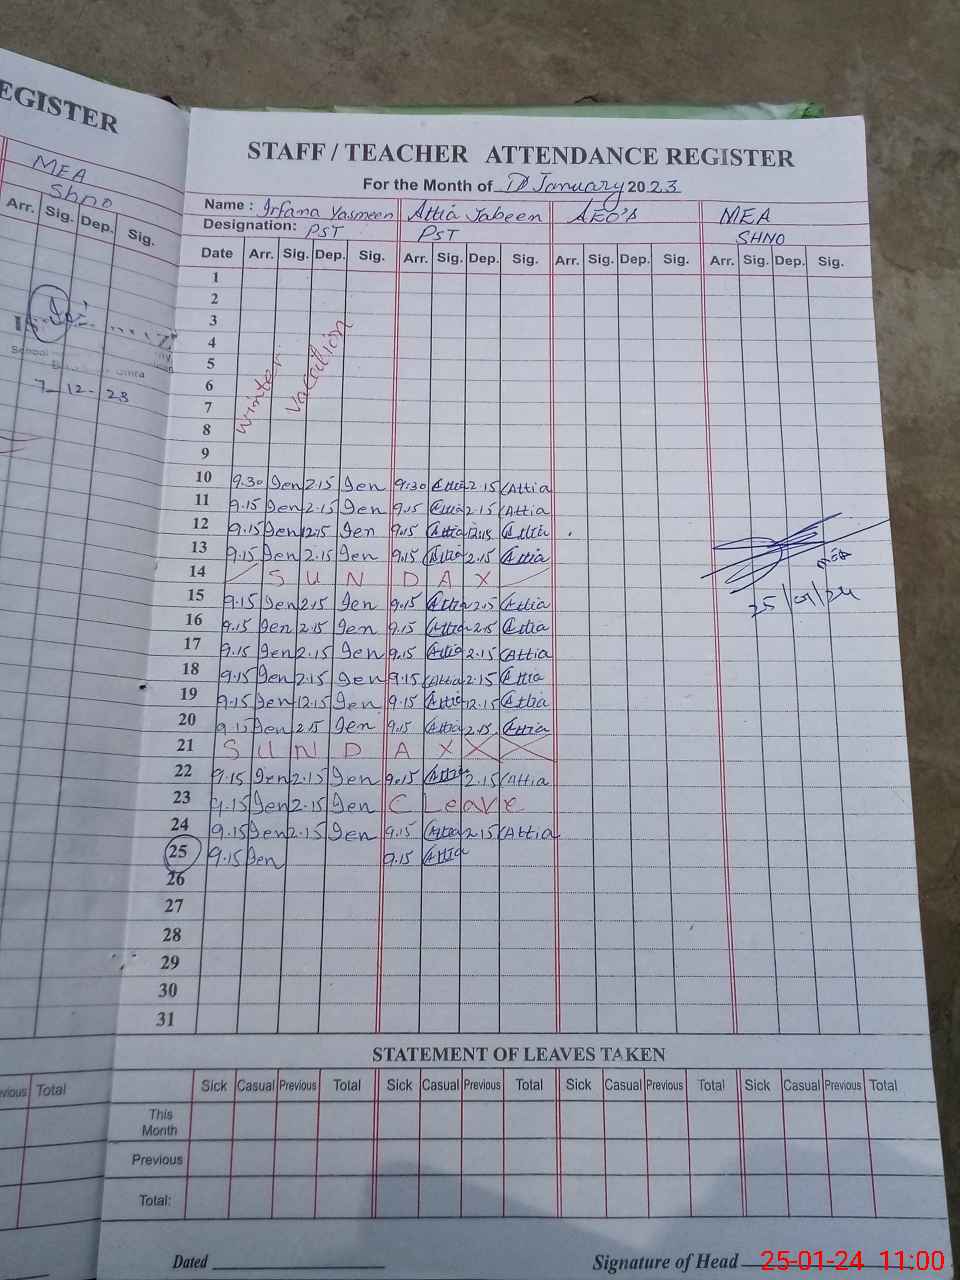 EGISTER
MEA
Shno
Arr. Sig. Dep. Sig.
School
7-12-23
vious Total
STAFF / TEACHER ATTENDANCE REGISTER
For the Month of January 2023
Name : Irfana Yasmeen Attia Jabeen AEO's MEA
Designation: PST PST SHNO
Date Arr. Sig. Dep. Sig. Arr. Sig. Dep. Sig. Arr. Sig. Dep. Sig. Arr. Sig. Dep. Sig.
1
2
3
4
5
6
7
8
winter vacation
9
10 9.30 Jen 2.15 Jen 9:30 Attia 2.15 Attia
11 9.15 Jen 2.15 Jen 9.15 Attia 2.15 Attia
12 9.15 Jen 12.15 Jen 9.15 Attia 12.15 Attia
13 9.15 Jen 2.15 Jen 9.15 Attia 2.15 Attia
14 S U N D A Y
15 9.15 Jen 2.15 Jen 9.15 Attia 2.15 Attia
16 9.15 Jen 2.15 Jen 9.15 Attia 2.15 Attia
17 9.15 Jen 2.15 Jen 9.15 Attia 2.15 Attia
18 9.15 Jen 2.15 Jen 9.15 Attia 2.15 Attia
19 9.15 Jen 12.15 Jen 9.15 Attia 12.15 Attia
20 9.15 Jen 2.15 Jen 9.15 Attia 2.15 Attia
21 S U N D A Y
22 9.15 Jen 2.15 Jen 9.15 Attia 2.15 Attia
23 9.15 Jen 2.15 Jen C Leave
24 9.15 Jen 2.15 Jen 9.15 Attia 2.15 Attia
25 9.15 Jen 9.15 Attia
26
27
28
29
30
31
MEA
25/01/24
STATEMENT OF LEAVES TAKEN
Sick Casual Previous Total Sick Casual Previous Total Sick Casual Previous Total Sick Casual Previous Total
This
Month
Previous
Total:
Dated Signature of Head
25-01-24 11:00